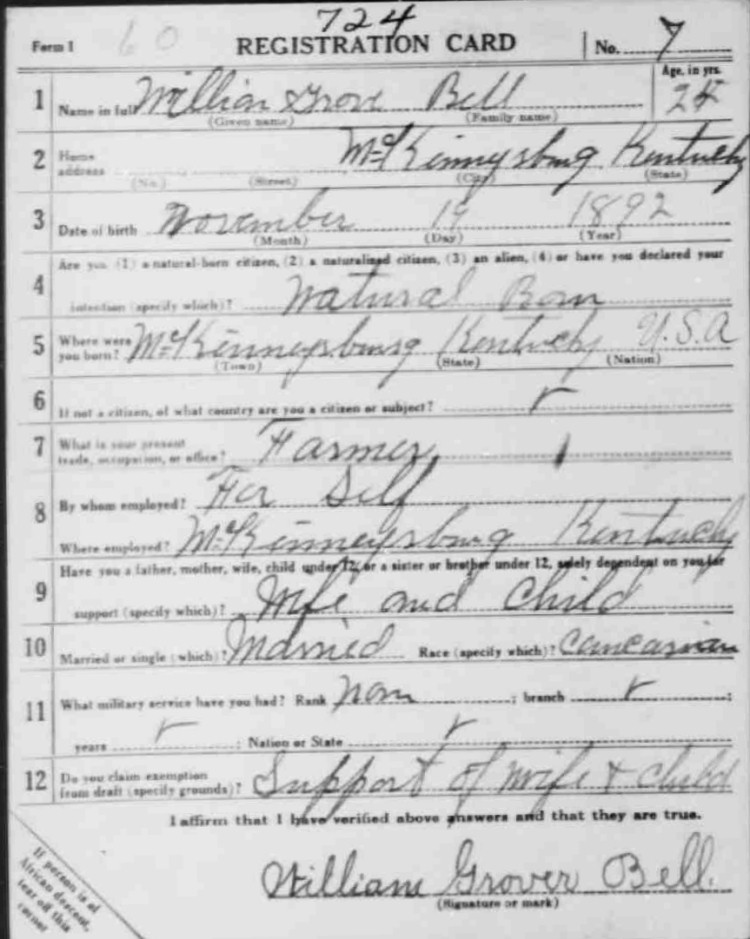 724
Form 1 60 REGISTRATION CARD No. 7
1 Name in full William Grove Bell Age, in yrs. 24
(Given name) (Family name)
2 Home address McKinneysburg Kentucky
(No.) (Street) (City) (State)
3 Date of birth November 19 1892
(Month) (Day) (Year)
4 Are you (1) a natural-born citizen, (2) a naturalized citizen, (3) an alien, (4) or have you declared your
intention (specify which)? Natural Born
5 Where were you born? McKinneysburg Kentucky U.S.A
(Town) (State) (Nation)
6 If not a citizen, of what country are you a citizen or subject?
7 What is your present trade, occupation, or office? Farmer
8 By whom employed? For Self
Where employed? McKinneysburg Kentucky
9 Have you a father, mother, wife, child under 12, or a sister or brother under 12, solely dependent on you for
support (specify which)? Wife and Child
10 Married or single (which)? Married Race (specify which)? Caucasian
11 What military service have you had? Rank non ; branch ;
years ; Nation or State
12 Do you claim exemption from draft (specify grounds)? Support of wife + child
I affirm that I have verified above answers and that they are true.
William Grover Bell.
(Signature or mark)
If person is of
African descent,
tear off this
corner